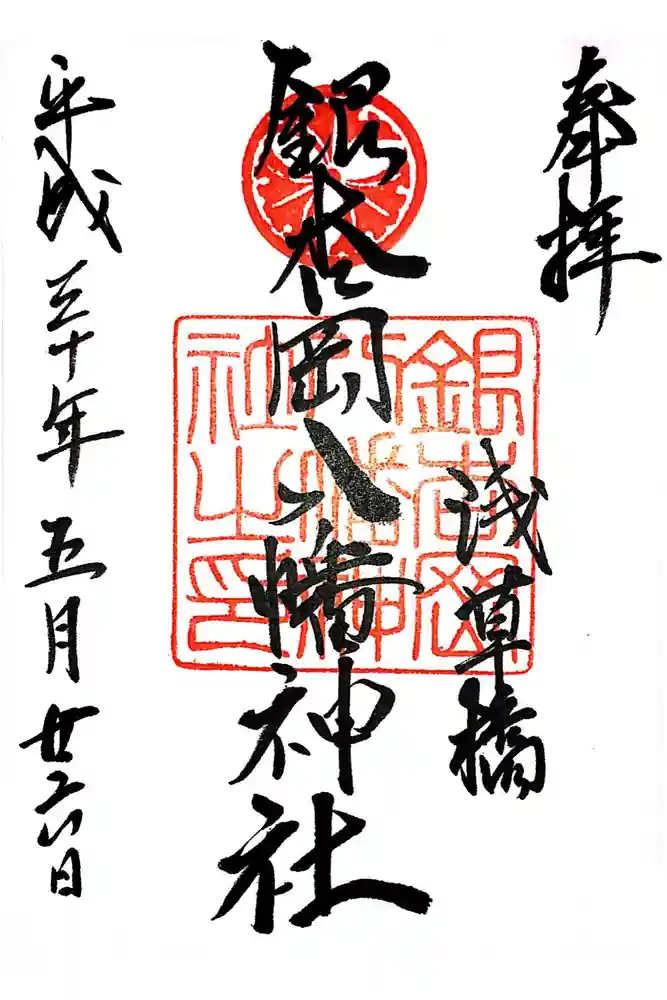 奉拝
浅草橋
銀杏岡八幡神社
平成三十年五月廿六日
銀杏岡
八幡神
社之印